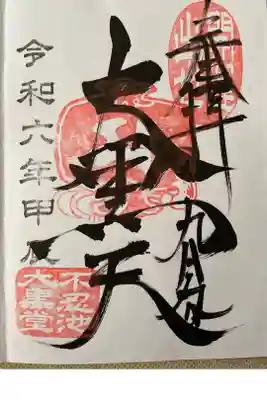 奉拝
九月
大黒天
令和六年甲辰
不忍池
大黒堂